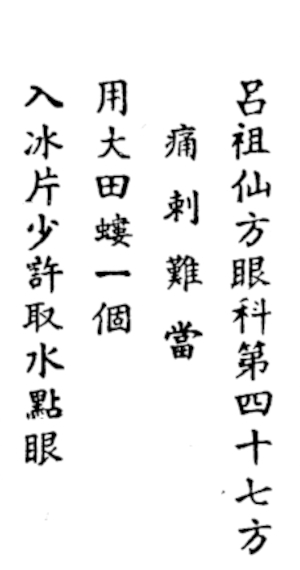 呂祖仙方眼科第四十七方
痛刺難當
用大田螻一個
入冰片少許取水點眼